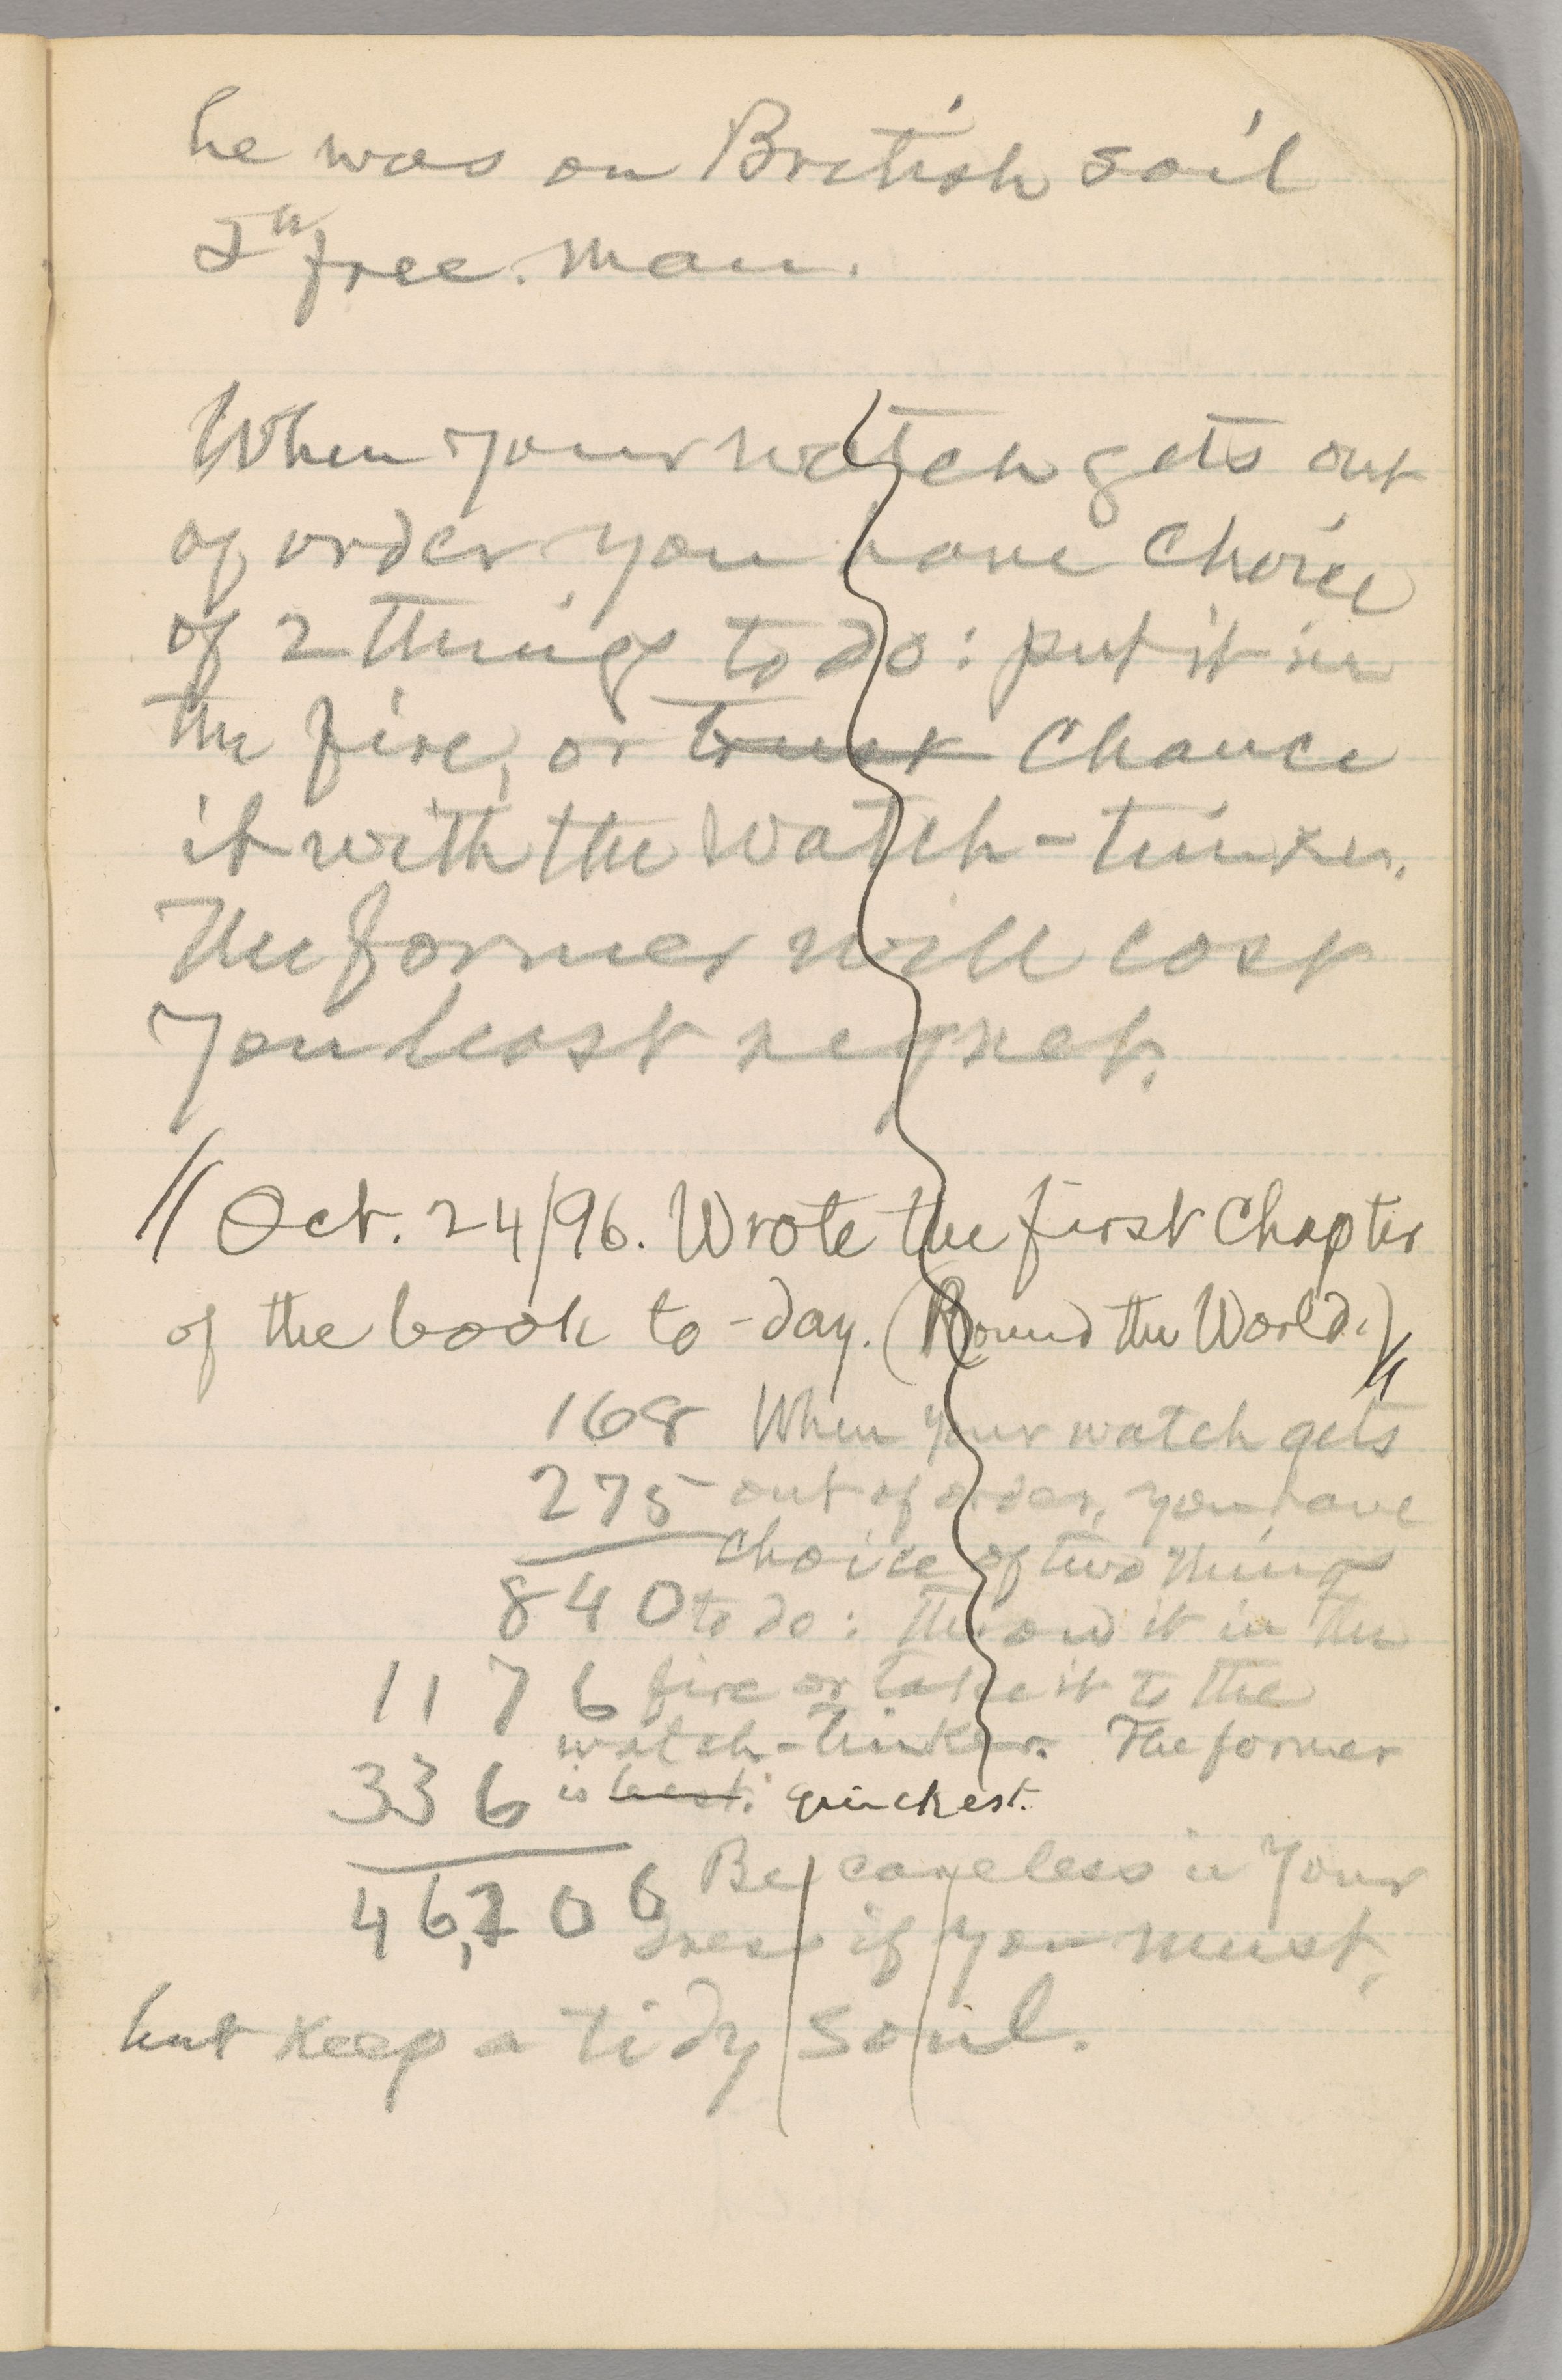 he was on British soil
free. man.
When your watch gets out
of order you have choice
of 2 things to do: put it in
the fire, or trust chance
it with the watch-tinker.
The former will cost
you least regret.
// Oct. 24/96. Wrote the first chapter
of the book to-day. (Round the World.) //
168 When your watch gets
275 out of order, you have
choice of two things
840 to do: throw it in the
1176 fire or take it to the
watch-tinker. The former
336 is best. quickest.
Be careless in your
46,206 dress if you must,
but keep a tidy soul.